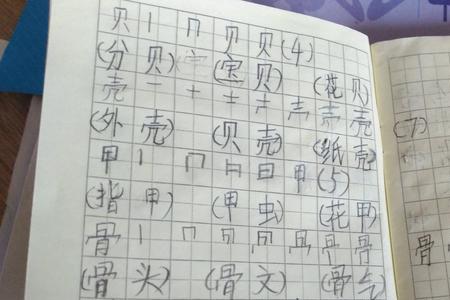 贝 丨 冂 贝 贝 (4)
(分 贝) (宝 贝) (花 贝)
壳 一 十 士 声 壳 壳
(外 壳) (贝 壳) (纸 壳)
甲 丨 冂 日 甲 (5)
(指 甲) (甲 虫) (花 甲)
骨 丨 冂 骨 骨
(骨 头) (骨 文) (骨 气)
(7)
骨